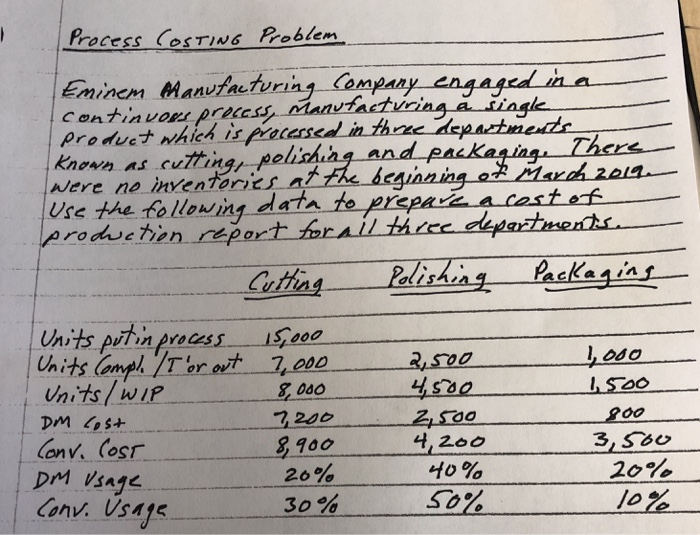 Process Costing Problem
Eminem Manufacturing Company engaged in a
continuous process, manufacturing a single
product which is processed in three departments
known as cutting, polishing and packaging. There
were no inventories at the beginning of March 2019.
Use the following data to prepare a cost of
production report for all three departments.
Cutting Polishing Packaging
Units put in process 15,000
Units Compl. / T'or out 7,000 2,500 1,000
Units / WIP 8,000 4,500 1,500
DM Cost 7,200 2,500 800
Conv. Cost 8,900 4,200 3,500
DM Usage 20% 40% 20%
Conv. Usage 30% 50% 10%